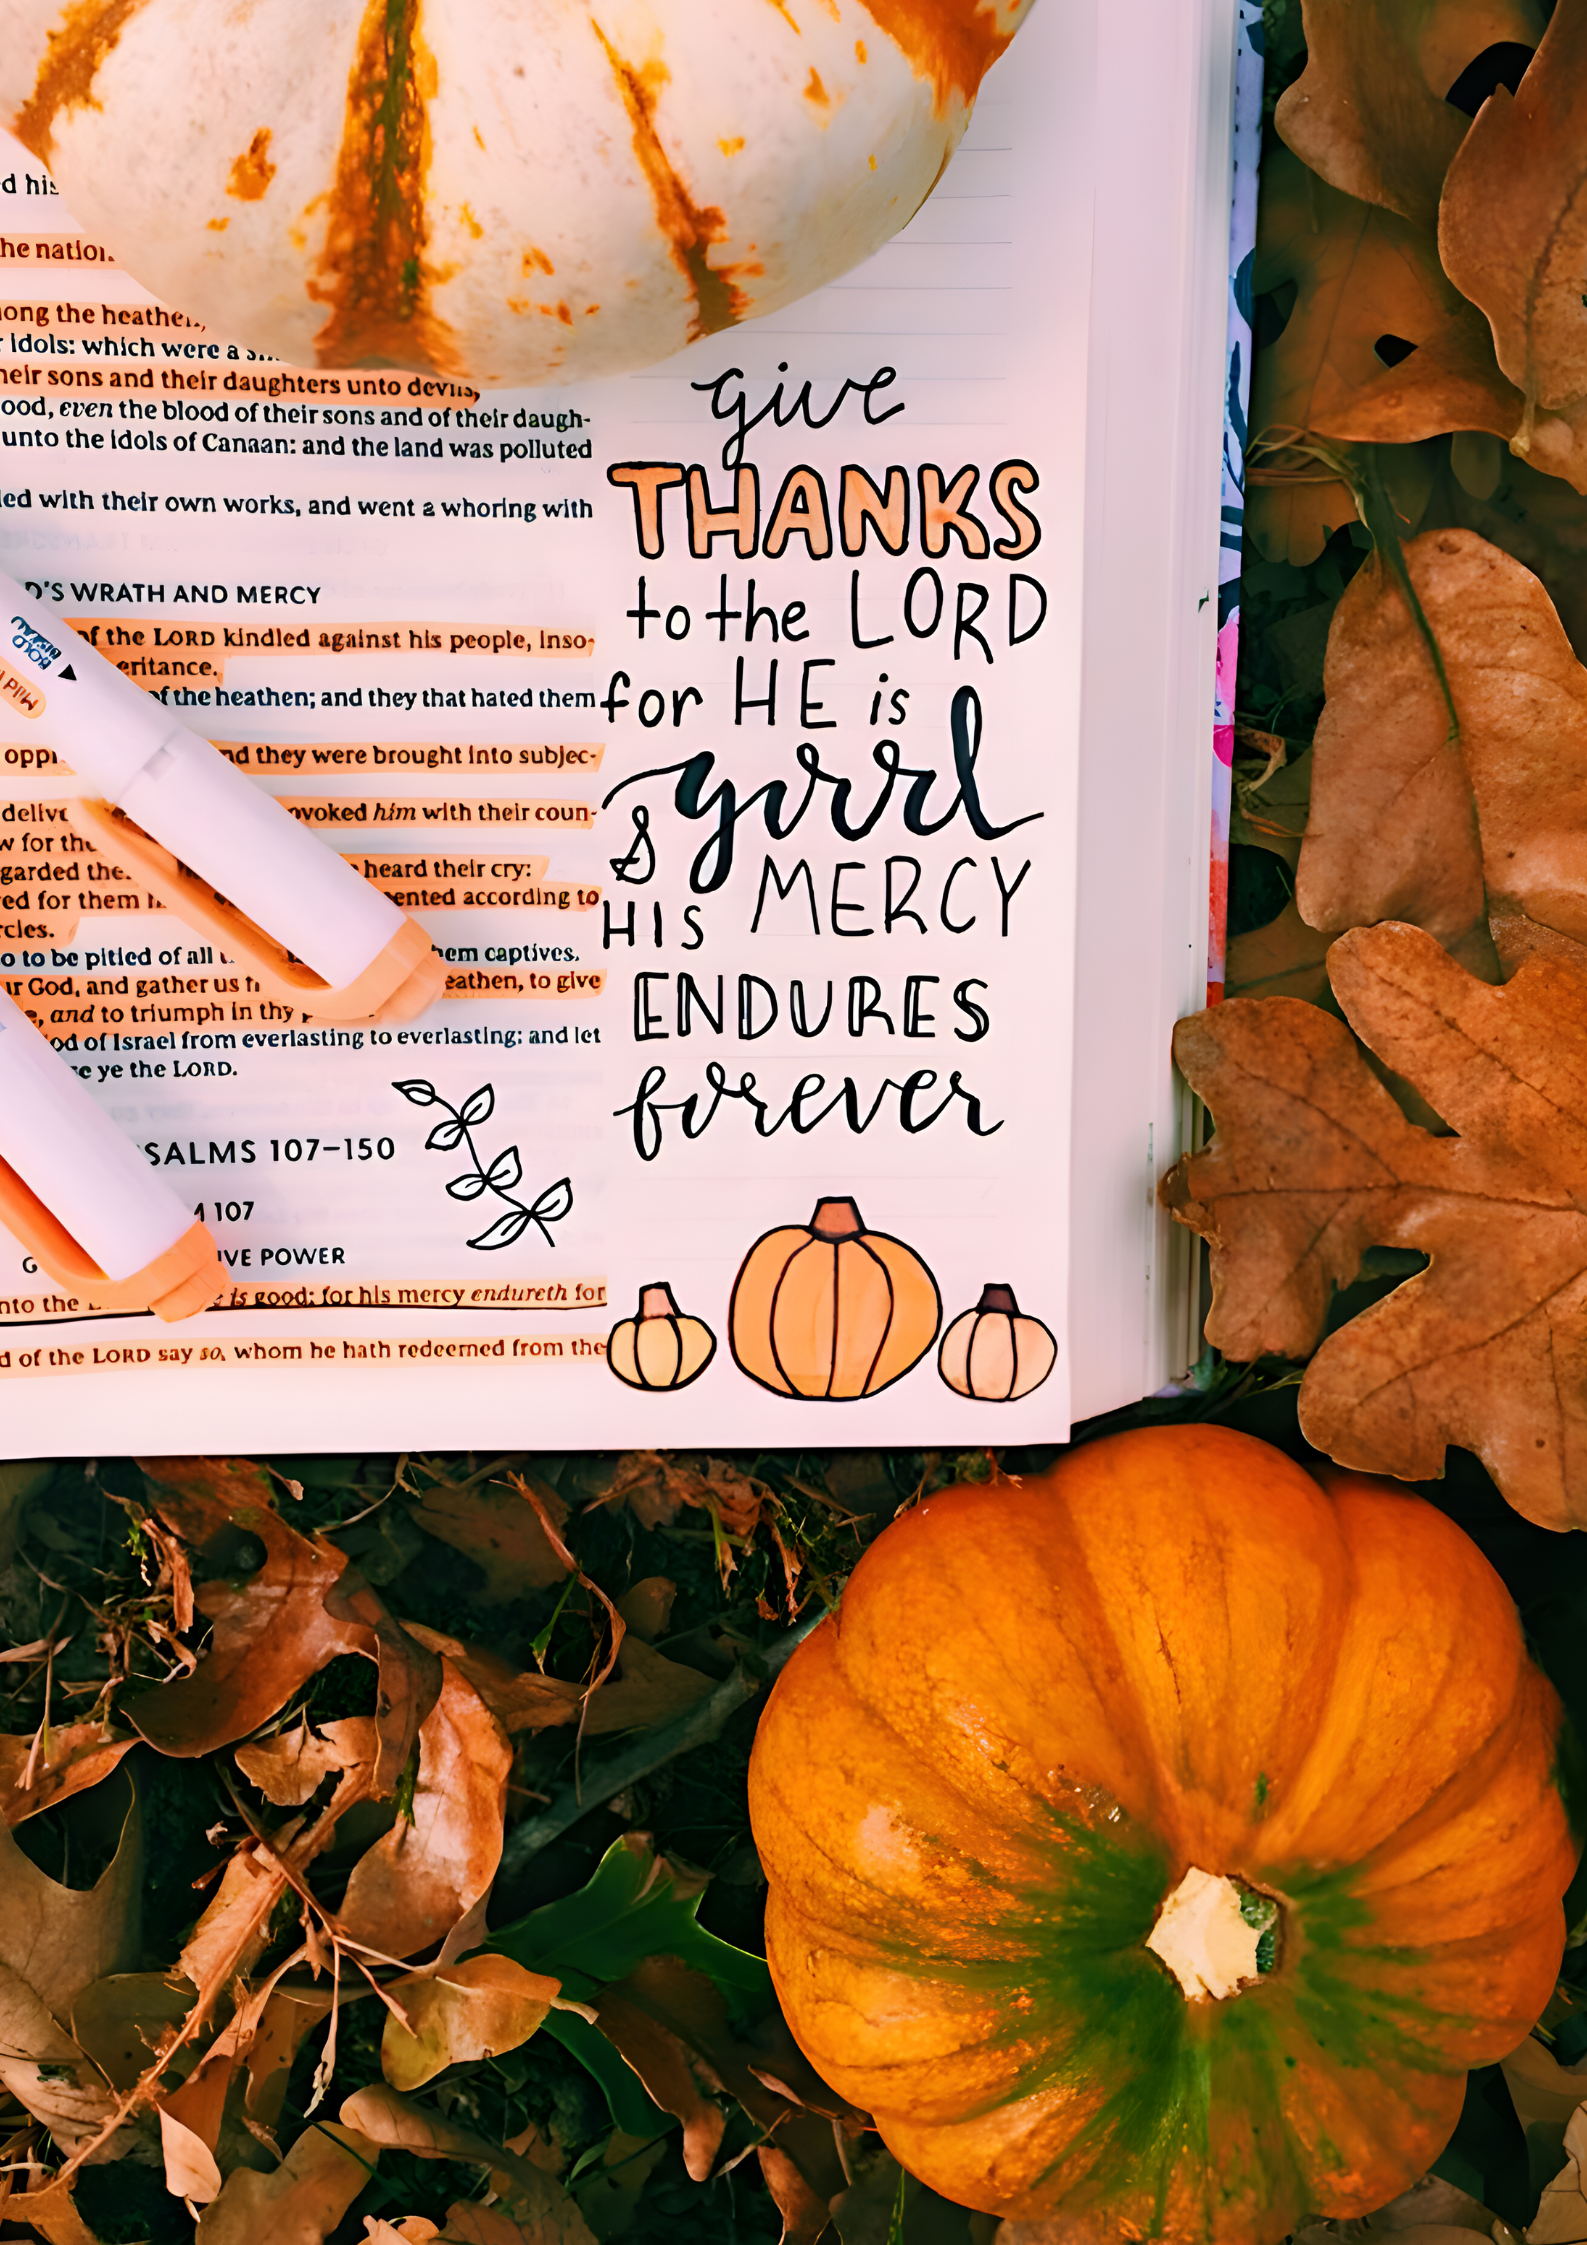 d his
he nation
ong the heathen,
idols: which were a
heir sons and their daughters unto devils,
ood, even the blood of their sons and of their daugh-
unto the idols of Canaan: and the land was polluted
led with their own works, and went a whoring with
D'S WRATH AND MERCY
of the LORD kindled against his people, inso-
eritance.
of the heathen; and they that hated them
opp nd they were brought into subjec-
delive ovoked him with their coun-
w for the
garded the heard their cry:
ed for them ented according to
rcies.
o to be pitied of all em captives.
ur God, and gather us eathen, to give
e, and to triumph in thy
od of Israel from everlasting to everlasting: and let
ye the LORD.
SALMS 107–150
M 107
G IVE POWER
nto the is good: for his mercy endureth for
d of the LORD say so, whom he hath redeemed from the
give
THANKS
to the LORD
for HE is
good
& HIS MERCY
ENDURES
forever
MILD